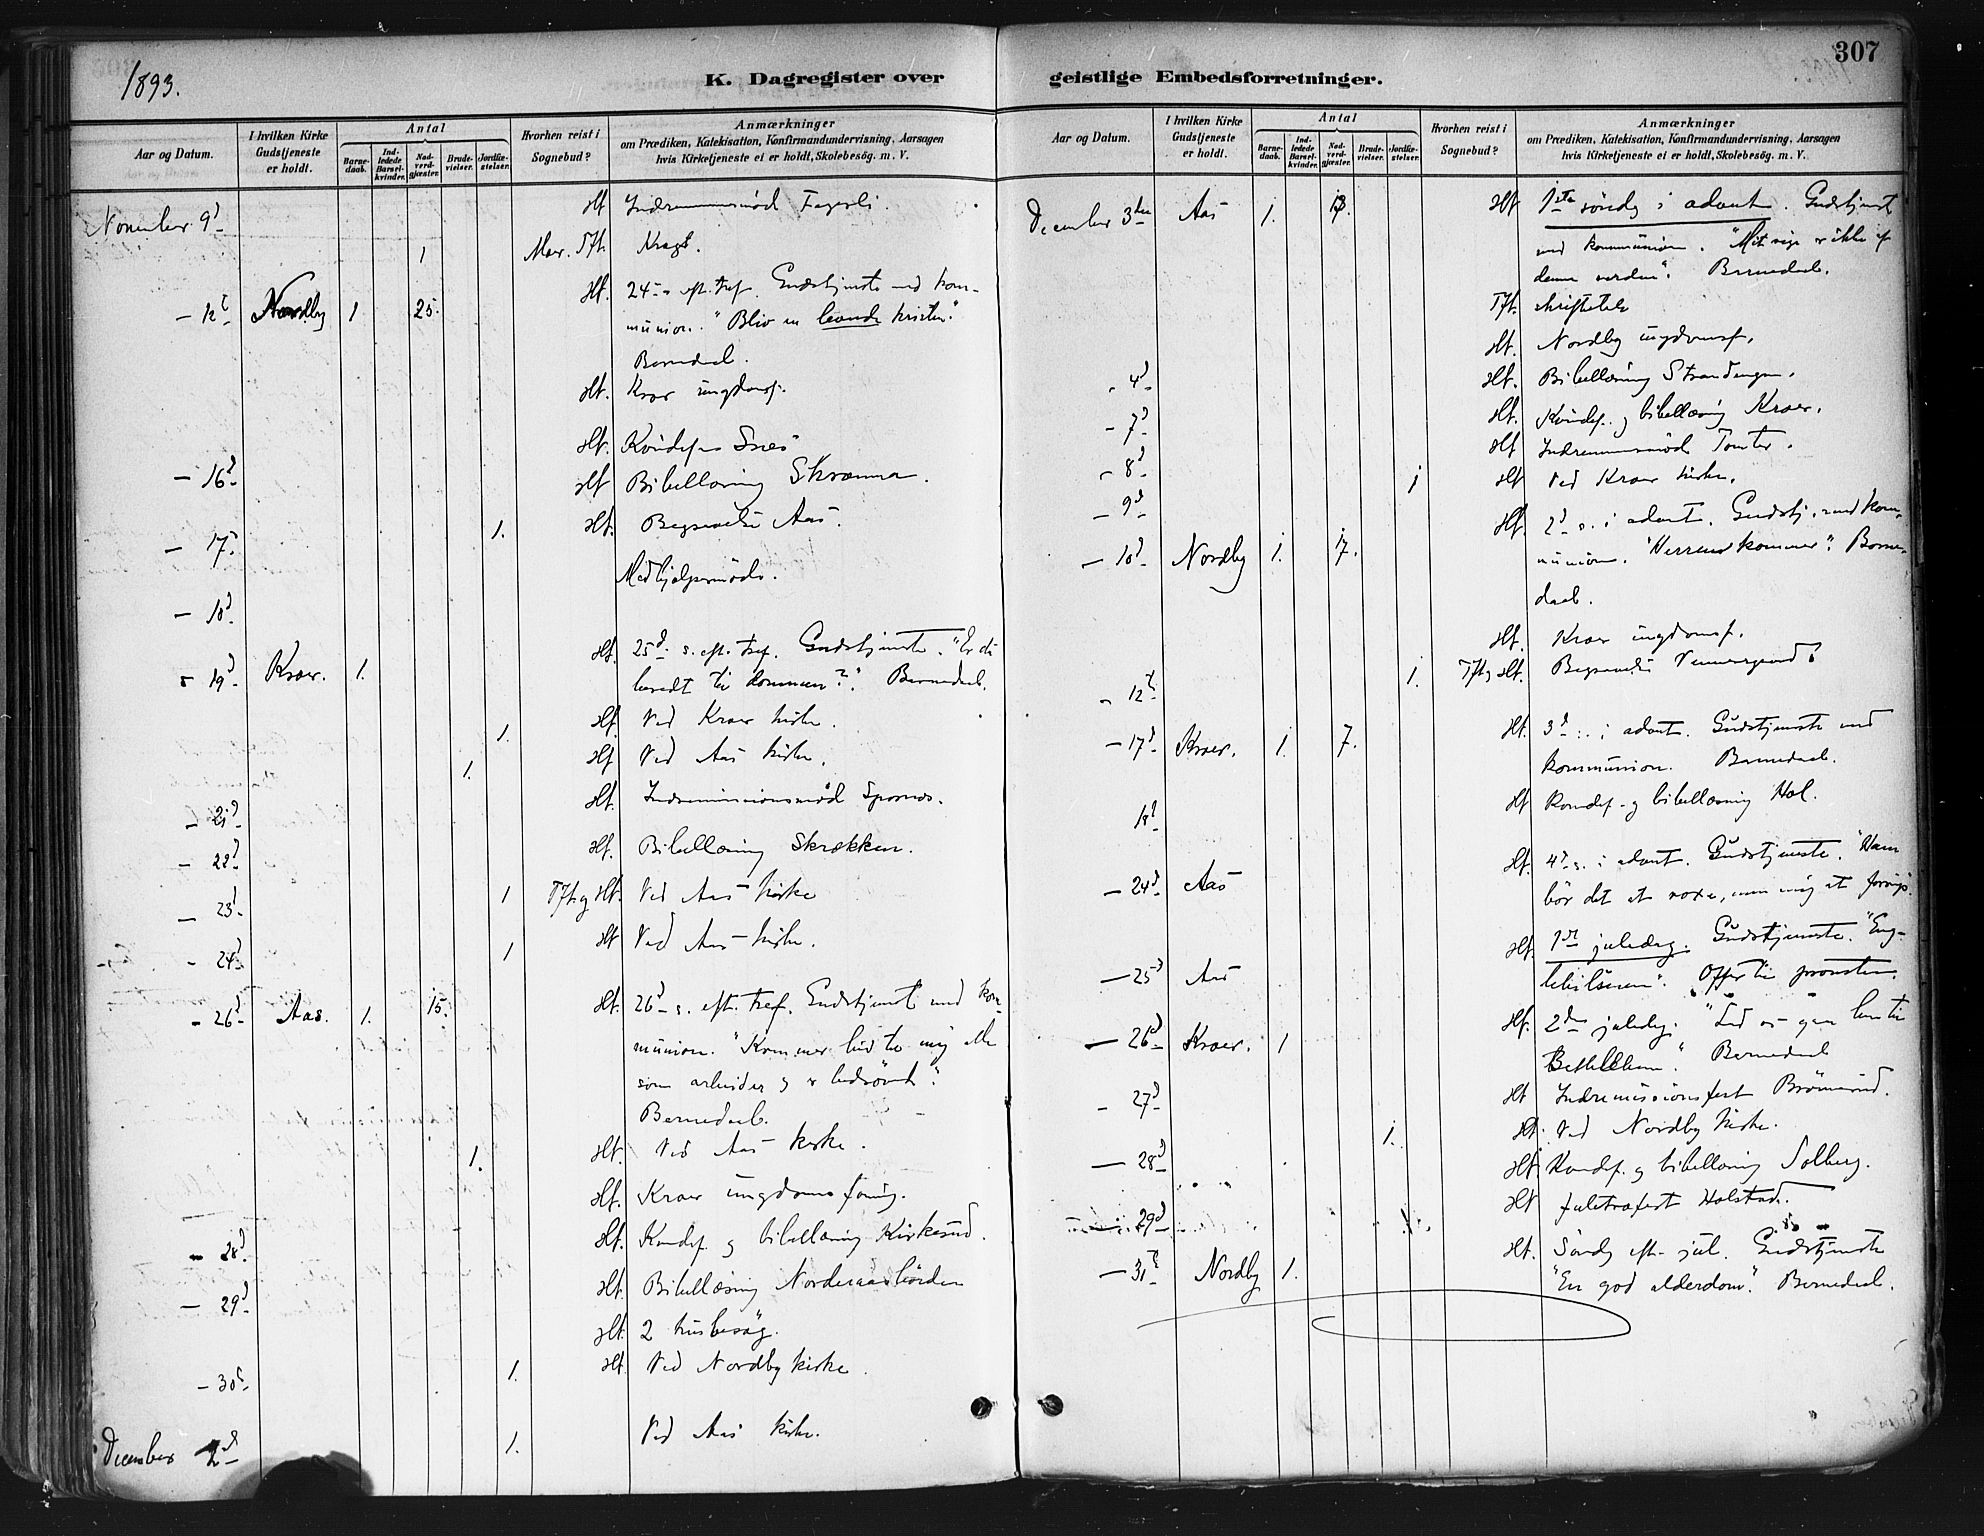 1893.
K. Dagregister over
Aar og Datum.
I hvilken Kirke Gudstjeneste er holdt.
Antal
Barnedaab.
Indledede Barselkvinder.
Nadverdgjæster.
Brudevielser.
Jordfæstelser.
Hvorhen reist i Sognebud?
Anmærkninger
om Prædiken, Katekisation, Konfirmandundervisning, Aarsagen
hvis Kirketjeneste ei er holdt, Skolebesøg. m. V.
November 9d Hf. Fagerli.
1 Krags.
- 12t Nordby 1 25. Hf. 24 s. eft. tref. Gudstjeneste med kom-
munion. "Bliv en levende kristen".
Barnedaab.
Hf. Kroer ungdomsf.
Hf. Kvindef.
- 16d Hf Bibellæsning
- 17d 1. Hf. Begravelse Aas.
- 18d Medhjælpermöde.
- 19d Kroer. 1. Hf. 25d s. eft. tref. Gudstjeneste. "Er du
beredt til Kommen?". Barnedaab.
1. Hf Ved Kroer kirke.
1. Hf Ved Aas kirke.
- 21d Hf. Indremissionsmöde
- 22d Hf. Bibellæsning Skrækken.
- 23d 1 Tft. og Hf. Ved Aas kirke
- 24d 1 Hf Ved Aas kirke.
- 26d Aas. 1. 15. Hf. 26d s. eft. tref. Gudstjeneste med kom-
munion. "Kommer hid til mig alle
som arbeider og er
Barnedaab.
1. Hf. Ved Aas kirke.
Hf. Kroer ungdomsforenig.
- 28d Hf. Kvindef. og bibellæsning Kirkerud.
- 29d Hf. Bibellæsning
Hf. 2 husbesög.
- 30d 1. Hf. Ved Nordby kirke.
December 2d 1. Ved Aas kirke.
307
geistlige Embedsforretninger.
Aar og Datum.
I hvilken Kirke Gudstjeneste er holdt.
Antal
Barnedaab.
Indledede Barselkvinder.
Nadverdgjæster.
Brudevielser.
Jordfæstelser.
Hvorhen reist i Sognebud?
Anmærkninger
om Prædiken, Katekisation, Konfirmandundervisning, Aarsagen
hvis Kirketjeneste ei er holdt, Skolebesøg. m. V.
December 3die Aas 1. Hf 1ste söndag i advent. Gudstjeneste
med kommunion. "Mit rige er ikke af
denne verden". Barnedaab.
Tft. skriftetale
Hf. Nordby ungdomsf.
- 4d Hf. Bibellæsning Strandengen.
- 7d Hf. Kvindef. og bibellæsning Kroer.
- 8d Hf Tomter.
- 9d 1 Hf Ved Kroer kirke.
- 10d Nordby 1. 17. Hf. 2d s. i advent. Gudstj. med kom-
munion. "Herren kommer". Barne-
daab.
Hf. Kroer ungdomsf.
- 12t 1. Tft og Hf. Begravelse
- 17d Kroer. 1. 7. Hf. 3d s. i advent. Gudstjeneste med
kommunion. Barnedaab.
18d Hf Kvindef. og bibellæsning Hol.
- 24d Aas Hf. 4d s. i advent. Gudstjeneste. "Ham
bör det at voxe, men mig at forringes".
- 25d Aas Hf. 1ste juledag. Gudstjeneste. "Eng-
lehilsenen". Offer til provsten.
- 26d Kroer. 1 Hf. 2den juledag. "Lad os gaa hen til
Bethlehem". Barnedaab
- 27d Hf Indremissionsfest Brönnerud.
1. Hf. Ved Nordby kirke.
- 28d Hf. Kvindef. og bibellæsning Solberg.
- 29d Hf juletræfest Holstad.
- 31te Nordby 1. Hf. Sönd. eft. jul. Gudstjeneste
"En god alderdom". Barnedaab.